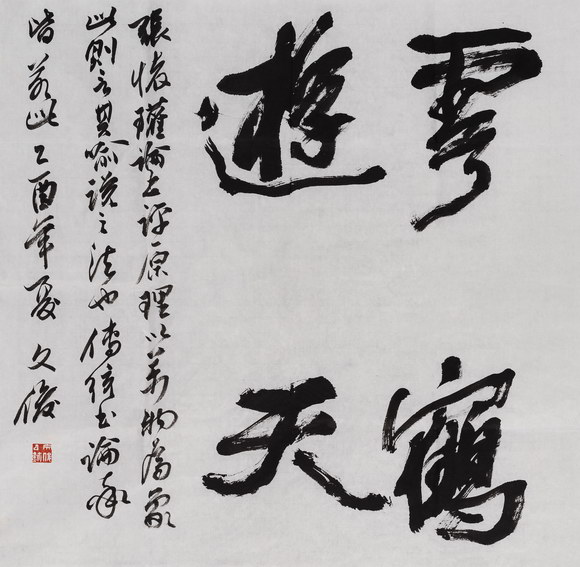 雲鶴
遊天
張懷瓘論書評原理以萬物為象
此則言其喻説之法也傳統書論
皆若此乙酉年夏文俊